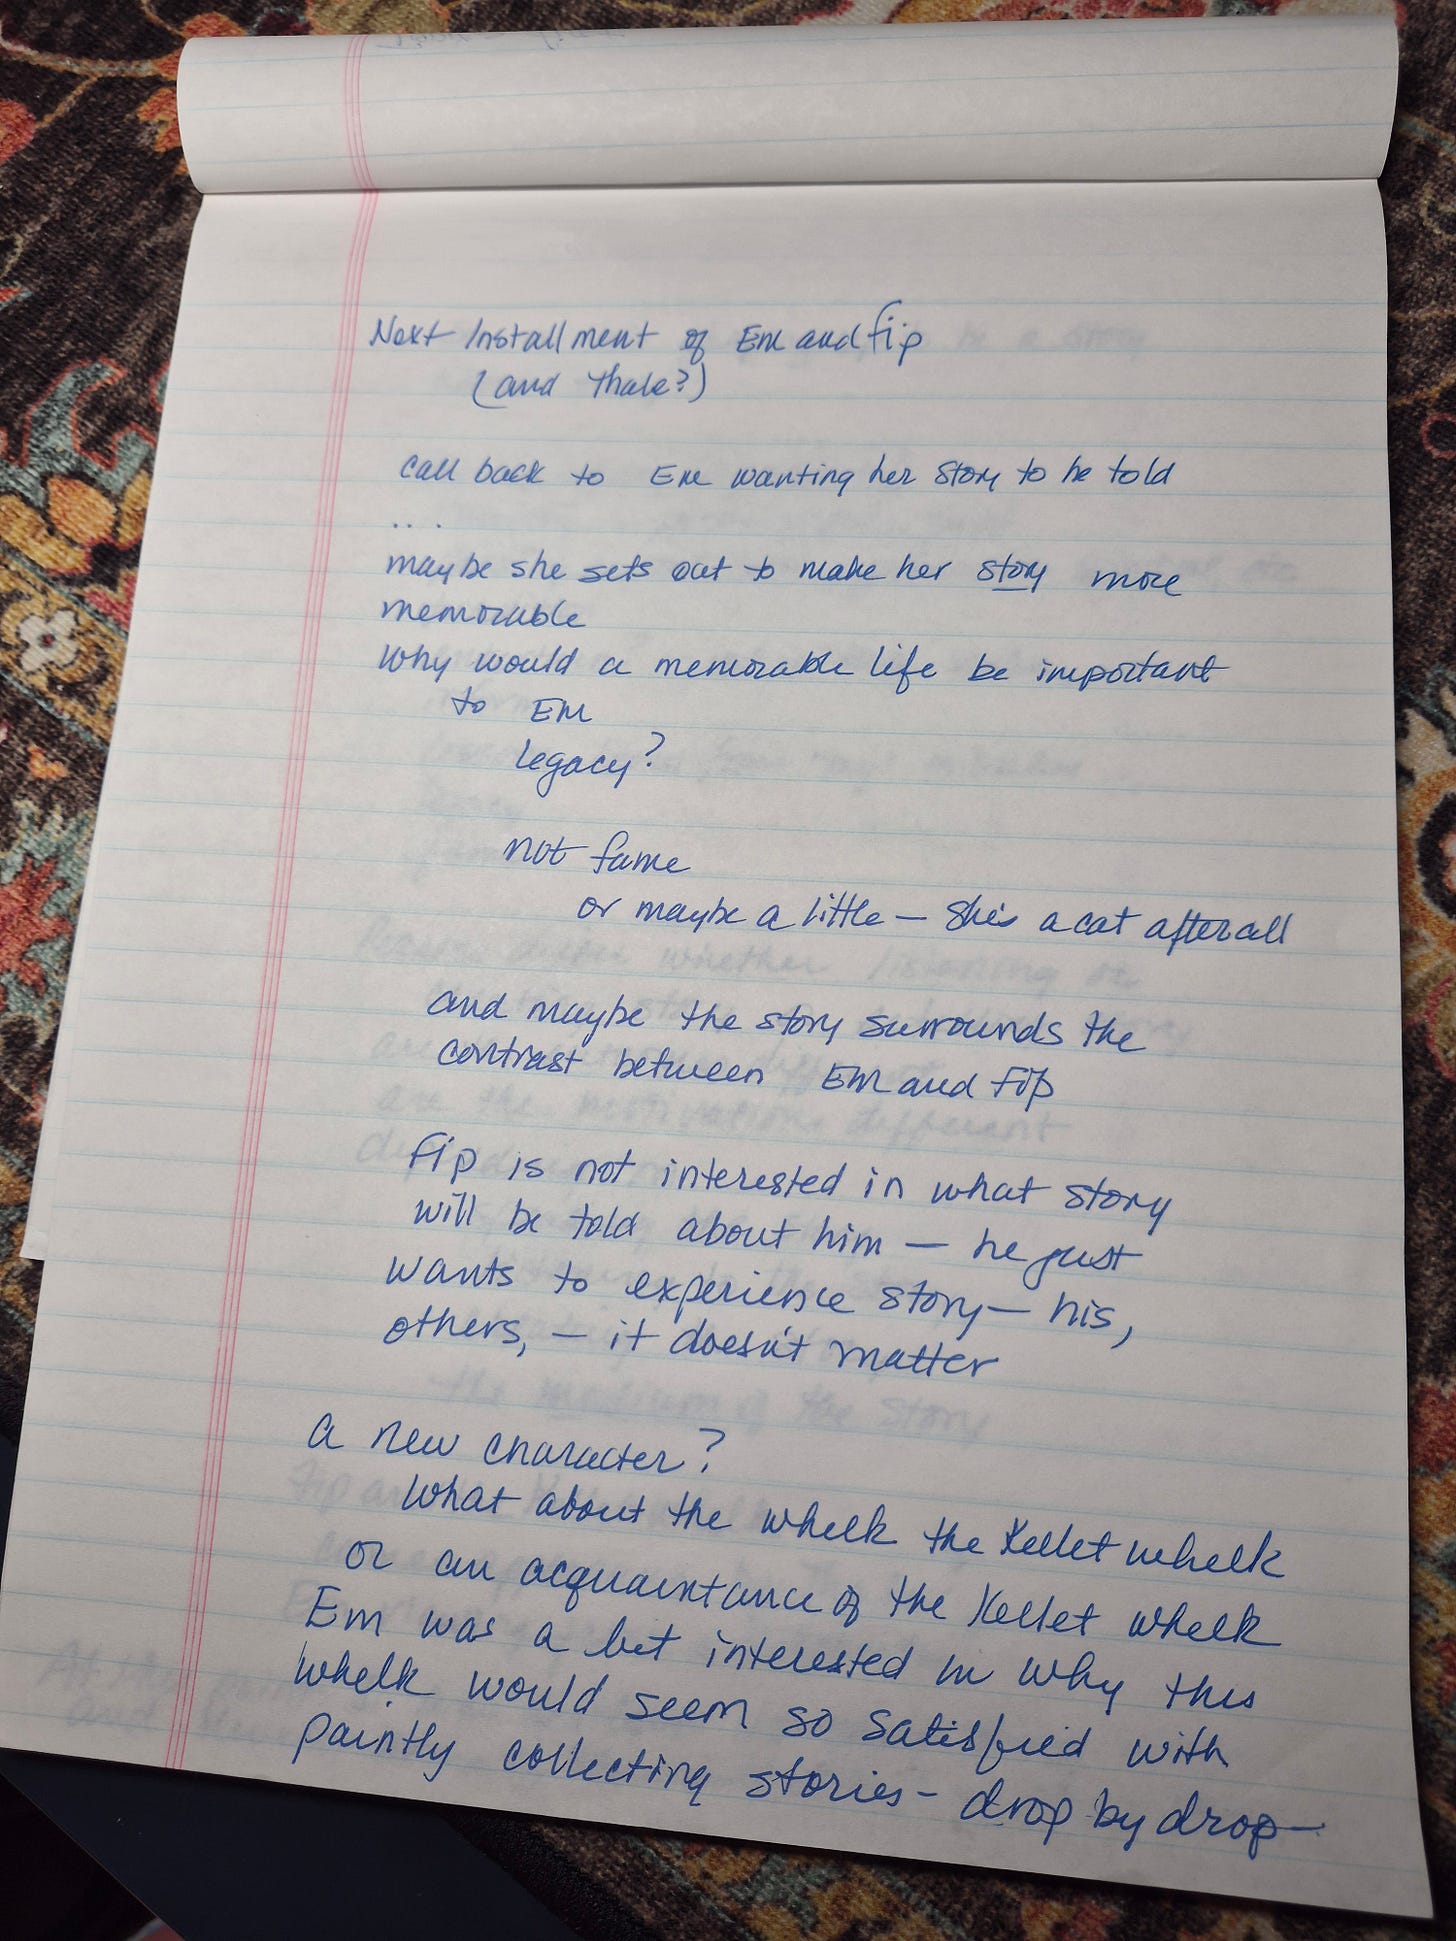 Next Installment of Em and Fip
(and Thale?)
call back to Em wanting her story to be told
....
maybe she sets out to make her story more
memorable
Why would a memorable life be important
to Em
legacy?
not fame
or maybe a little — she's a cat after all
and maybe the story surrounds the
contrast between Em and Fip
Fip is not interested in what story
will be told about him — he just
wants to experience story — his,
others, — it doesn't matter
a new character?
What about the whelk the Kellet whelk
or an acquaintance of the Kellet whelk
Em was a bit interested in why this
whelk would seem so satisfied with
collecting stories - drop by drop —